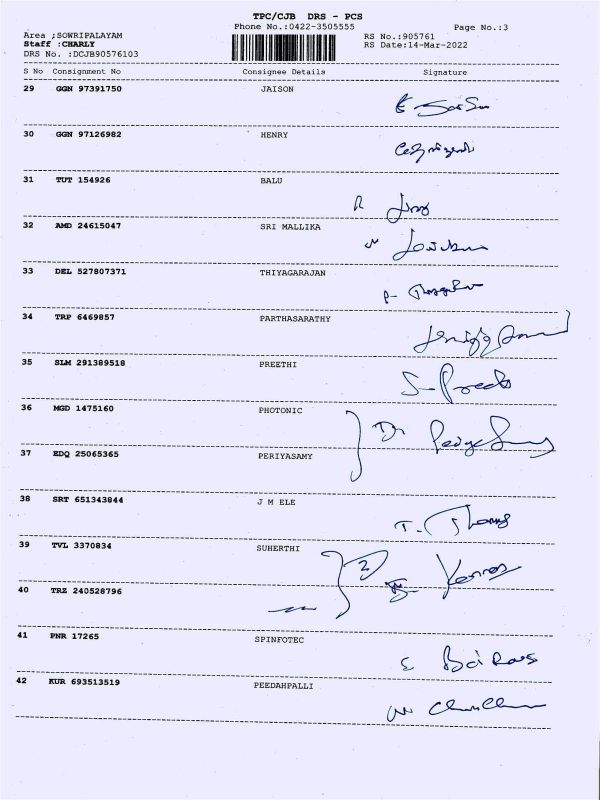 TPC/CJB DRS - PCS
Phone No.:0422-3505555
Page No.:3
Area ;SOWRIPALAYAM
RS No.:905761
Staff :CHARLY
RS Date:14-Mar-2022
DRS No. :DCJB90576103
S No Consignment No Consignee Details Signature
29 GGN 97391750 JAISON
30 GGN 97126982 HENRY
31 TUT 154926 BALU
32 AMD 24615047 SRI MALLIKA
33 DEL 527807371 THIYAGARAJAN
34 TRP 6469857 PARTHASARATHY
35 SLM 291389518 PREETHI
S-Preethi
36 MGD 1475160 PHOTONIC
37 EDQ 25065365 PERIYASAMY
38 SRT 651343844 J M ELE
39 TVL 3370834 SUHERTHI
2
40 TRZ 240528796
41 PNR 17265 SPINFOTEC
42 KUR 693513519 PEEDAHPALLI